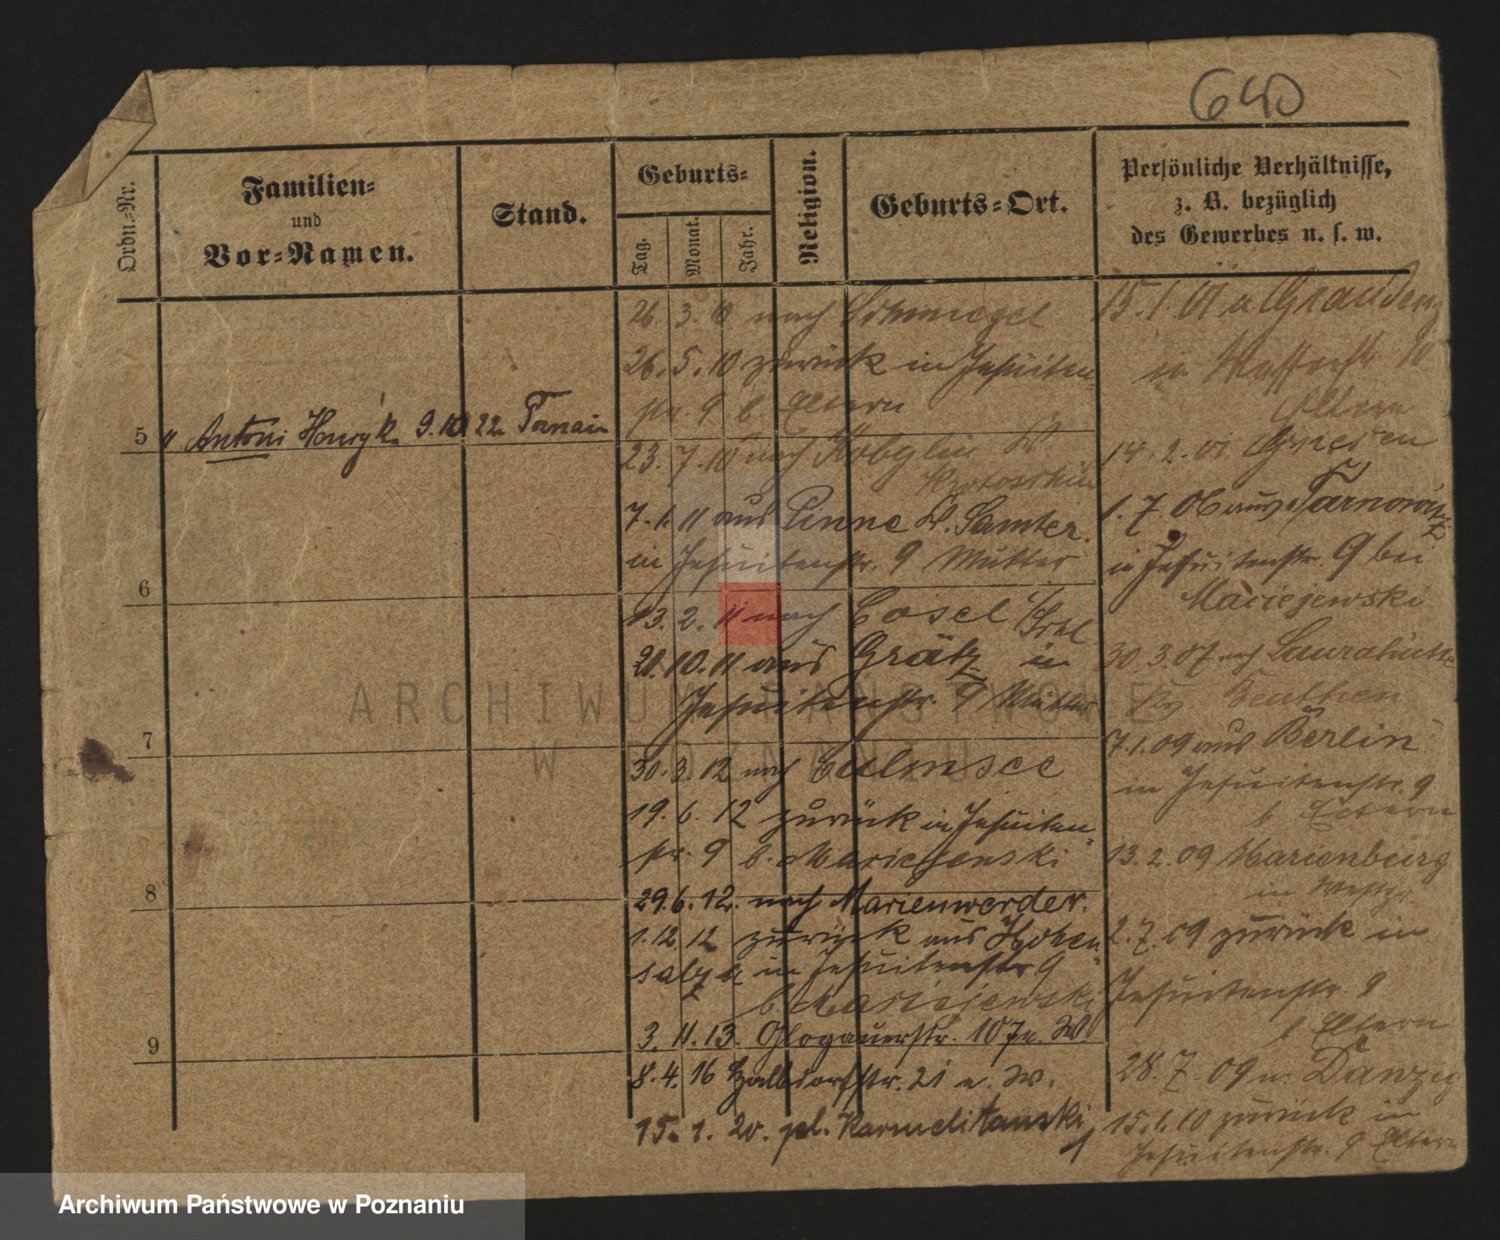 640
Ordn.-Nr.
Familien-
und
Vor-Namen.
Stand.
Geburts-
Tag.
Monat.
Jahr.
Religion.
Geburts-Ort.
Persönliche Verhältnisse,
z. B. bezüglich
des Gewerbes u. s. w.
5 " Antoni Henryk 9.10 22
6
7
8
9
26. 3. 10 nach Schmiegel
26. 5. 10 zurück in Jesuiten
str. 9 b. Eltern
23. 7. 10 nach Kobylin Kr.
Krotoschin
7. 1. 11 aus Pinne Kr. Samter.
in Jesuitenstr. 9 Mutter
13. 2. 11 nach Cosel
20. 10. 11 aus Grätz in
Jesuitenstr. 9 Mutter
30. 3. 12 nach Culmsee
19. 6. 12 zurück in Jesuiten-
str. 9 b. Maciejewski
29. 6. 12. nach Marienwerder.
1. 12 12 zurück aus Hohen
salza in Jesuitenstr 9
b. Maciejewski
3. 11. 13. Glogauerstr. 107a. W
8. 4. 16 21 a. W.
15. 1. 20. pl. Karmelitanski
1
15. 1. 01 n. Graudenz
in
Eltern
14. 2. 01 Gnesen
1. 7. 06 aus Tarnowitz
in Jesuitenstr. 9 bei
Maciejewski
30. 3. 07 nach Laurahütte
Beuthen
7. 1. 09 aus Berlin
in Jesuitenstr. 9
b Eltern
13. 2. 09 Marienburg
in Westpr.
2. 7. 09 zurück in
Jesuitenstr. 9
b Eltern
28. 7. 09 n. Danzig
15. 1. 10 zurück in
Jesuitenstr. 9 Eltern
ARCHIWUM PAŃSTWOWE
W POZNANIU
Archiwum Państwowe w Poznaniu